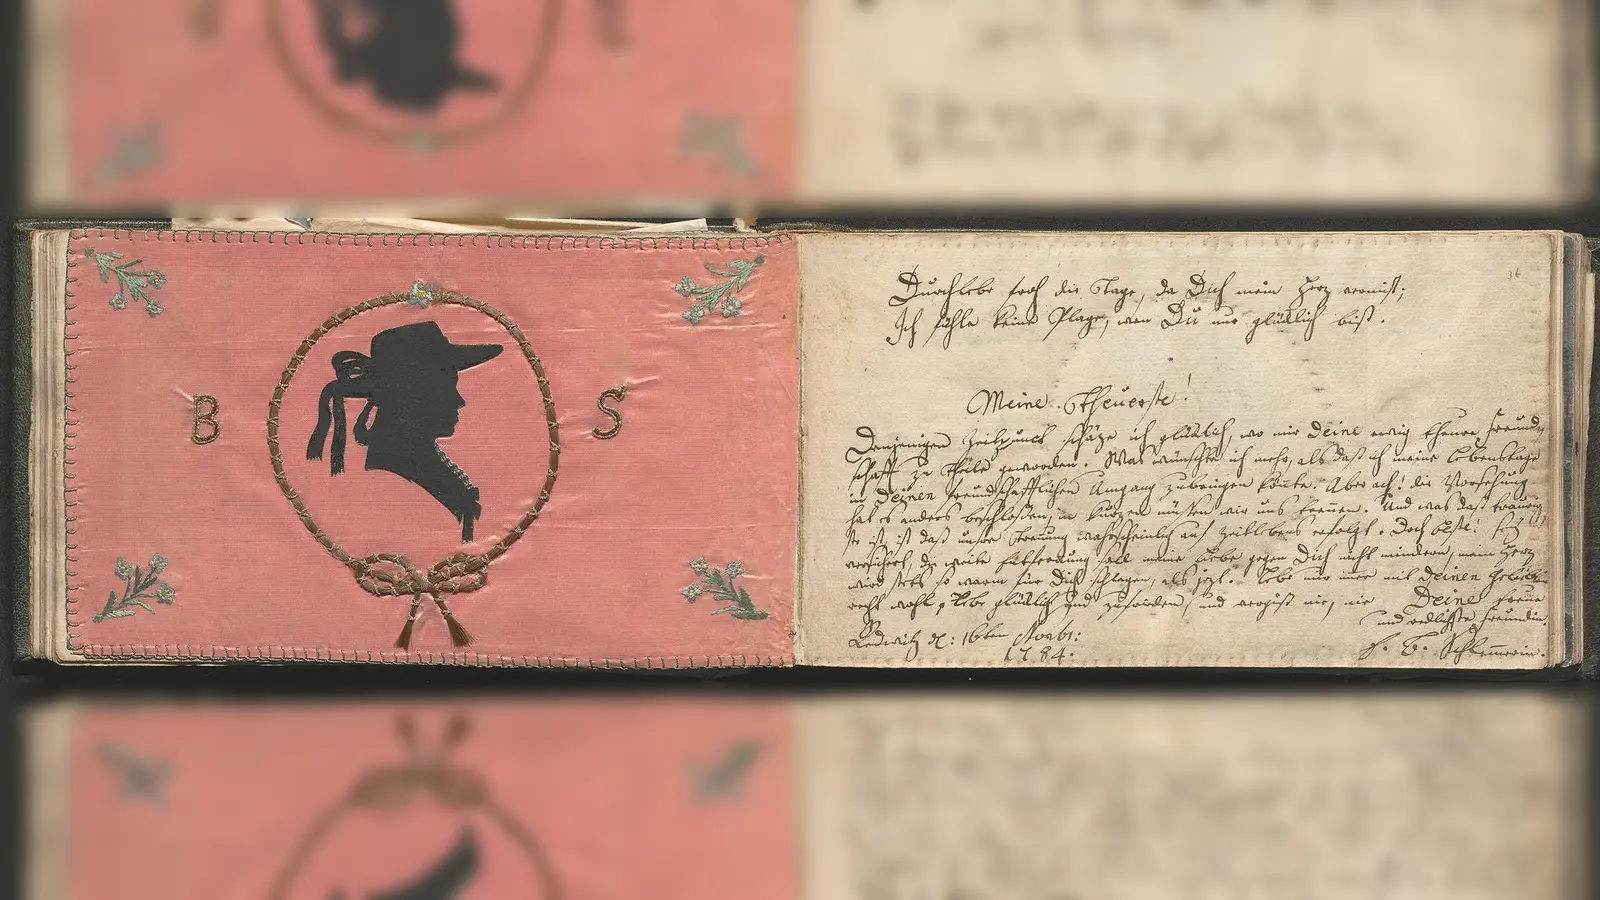 B S
16
Durchlebe froh die Tage, da Dich mein Herz vermißt;
Ich fühle keine Plage, wen Du nur glücklich bist.
Meine Theuerste!
Denjenigen Zeitpunct schäze ich glücklich, wo mir Deine ewig theure Freund-
schafft zu Theile geworden. Was wünschte ich mehr, als daß ich meine Lebenstage
in Deinen freundschafftlichen Umgang zubringen könte. Aber ach! die Vorsehung
hat es anders beschloßen, in kurzen müßen wir uns trennen. Und was das traurig-
ste ist, ist daß unsre Trennung wahrscheinlich auf Zeitlebens erfolgt. Doch beste!
versichert, die weite Entfernung soll meine Liebe gegen Dich nicht mindern, mein Herz
wird stets so warm für Dich schlagen, als jezt. Lebe nur mit Deinen
recht wohl, Lebe glücklich und zufrieden, und vergiß nie, nie Deine treue
und redlichste Freundin.
Redwitz d: 16ten Novbr:
1784.